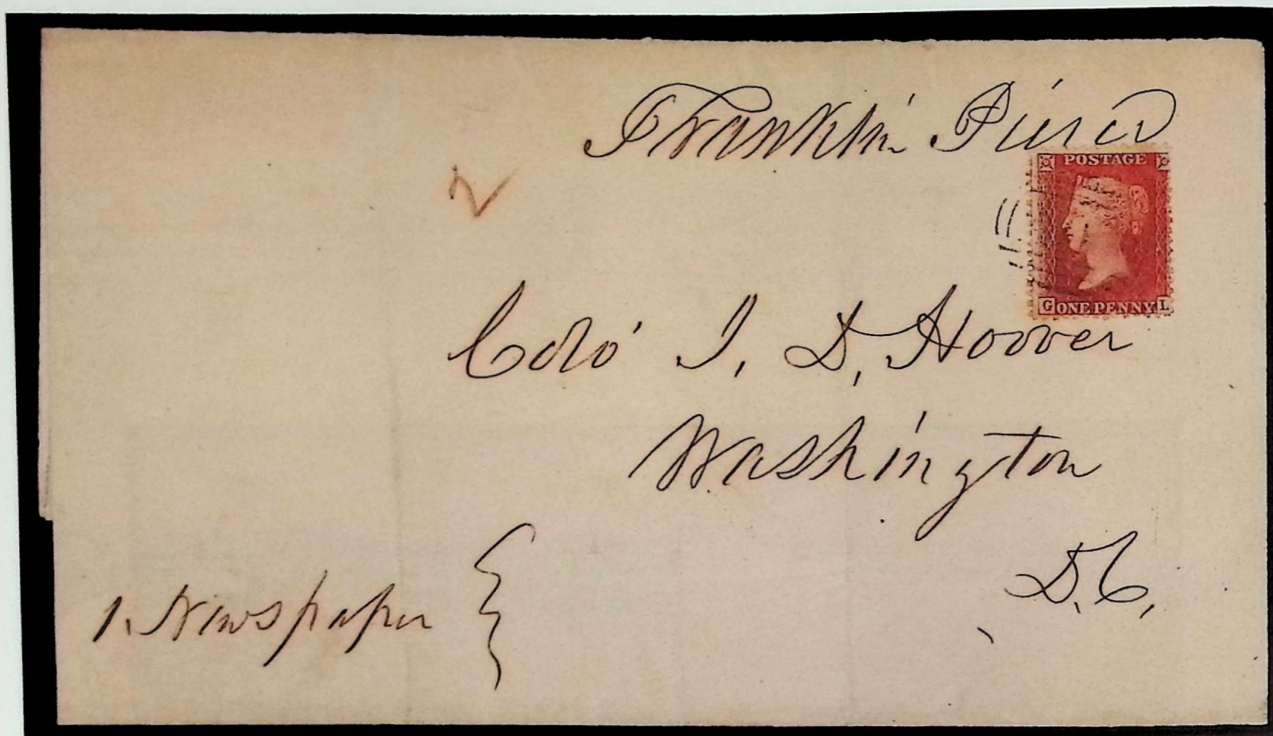 Franklin Pierce
POSTAGE
G ONE PENNY L
2
Colo' J. D, Hoover
Washington
D.C,
1. Newspaper